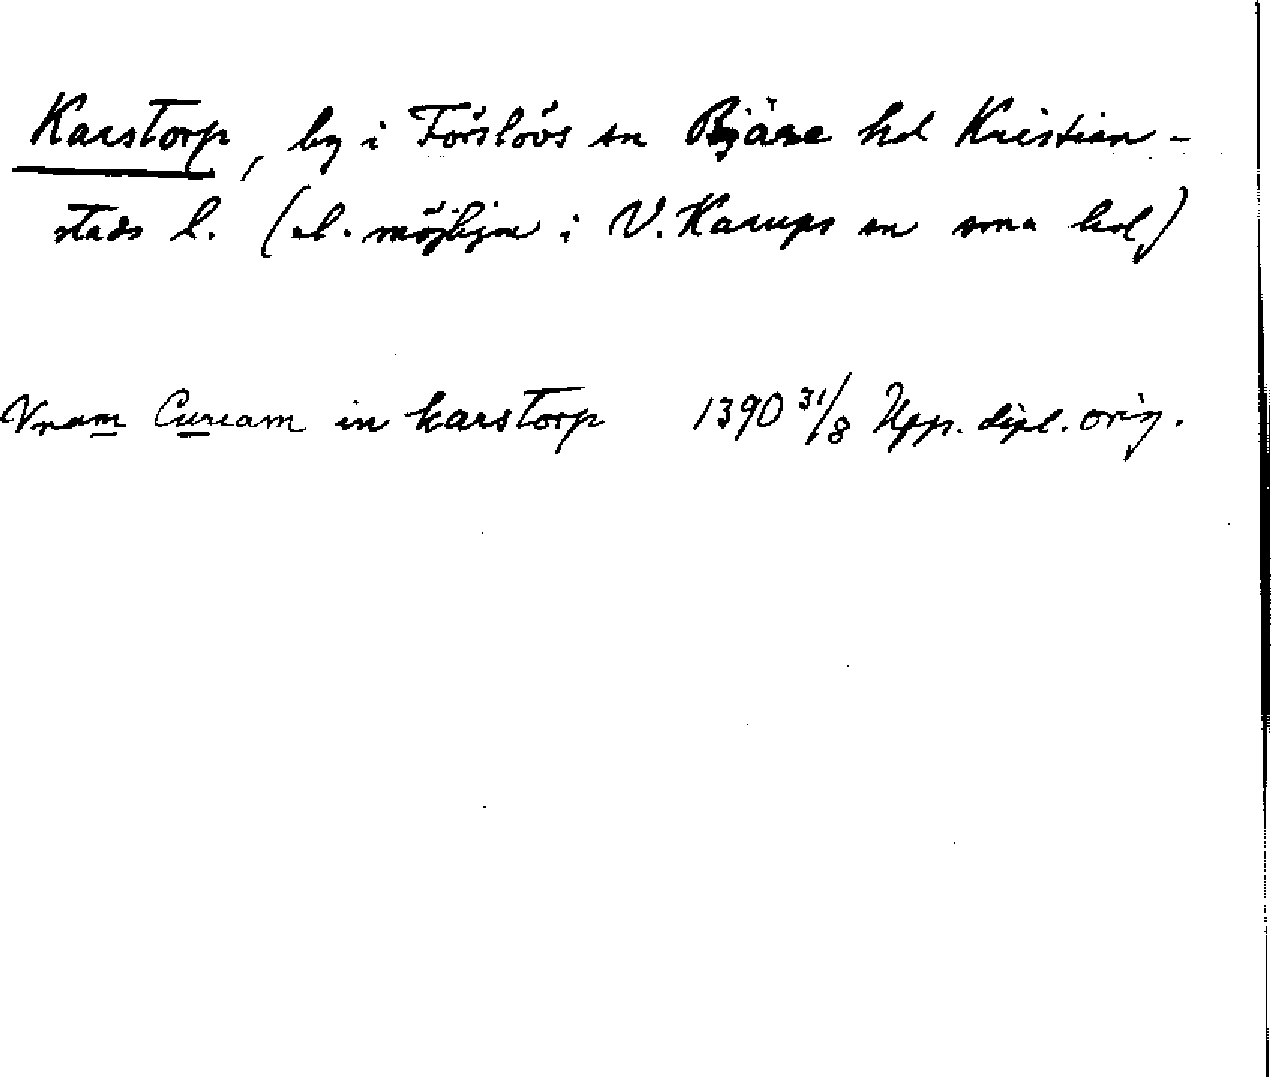 Karstorp, by i Förslövs sn Bjäre hd Kristian-
stads l. (el. möjligen i V. Karups sn sma hd)
Vnam Curiam in karstorp 1390 31/8 Upp. dipl. orig.